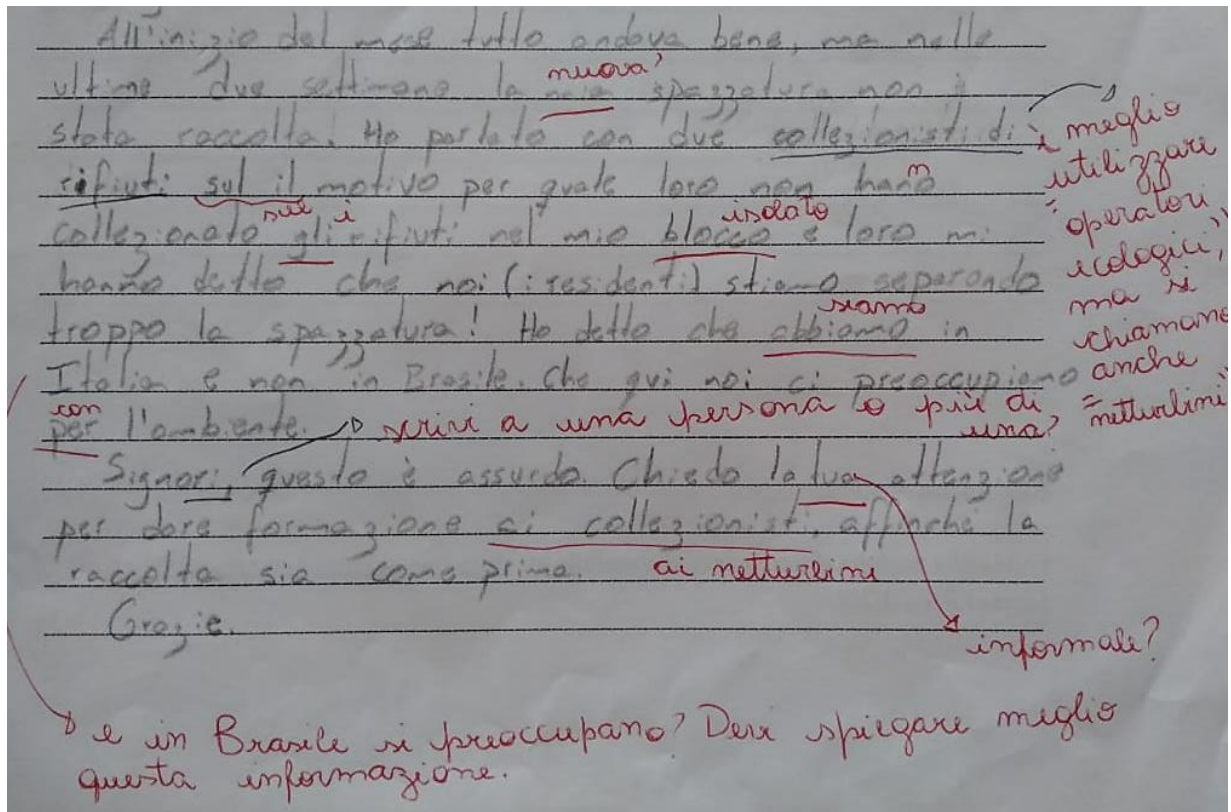 All'inizio del mese tutto andava bene, ma nelle
nuova?
ultime due settimane la mia spazzatura non è
stata raccolta. Ho parlato con due collezionisti di
rifiuti sul il motivo per quale loro non hano
n
collezionato gli rifiuti nel mio blocco e loro mi
sul i
isolato
hanno detto che noi (i residenti) stiamo separando
troppo la spazzatura! Ho detto che abbiamo in
siamo
Italia e non in Brasile. Che qui noi ci preoccupiamo
con
per l'ambiente.
scrivi a una persona o più di
una?
Signori, questo è assurdo. Chiedo la tua attenzione
per dare formazione ai collezionisti, affinché la
raccolta sia come prima.
ai netturbini
Grazie.
è meglio
utilizzare
"operatori
ecologici",
ma si
chiamano
anche
"netturbini"
informale?
e in Brasile si preoccupano? Devi spiegare meglio
questa informazione.